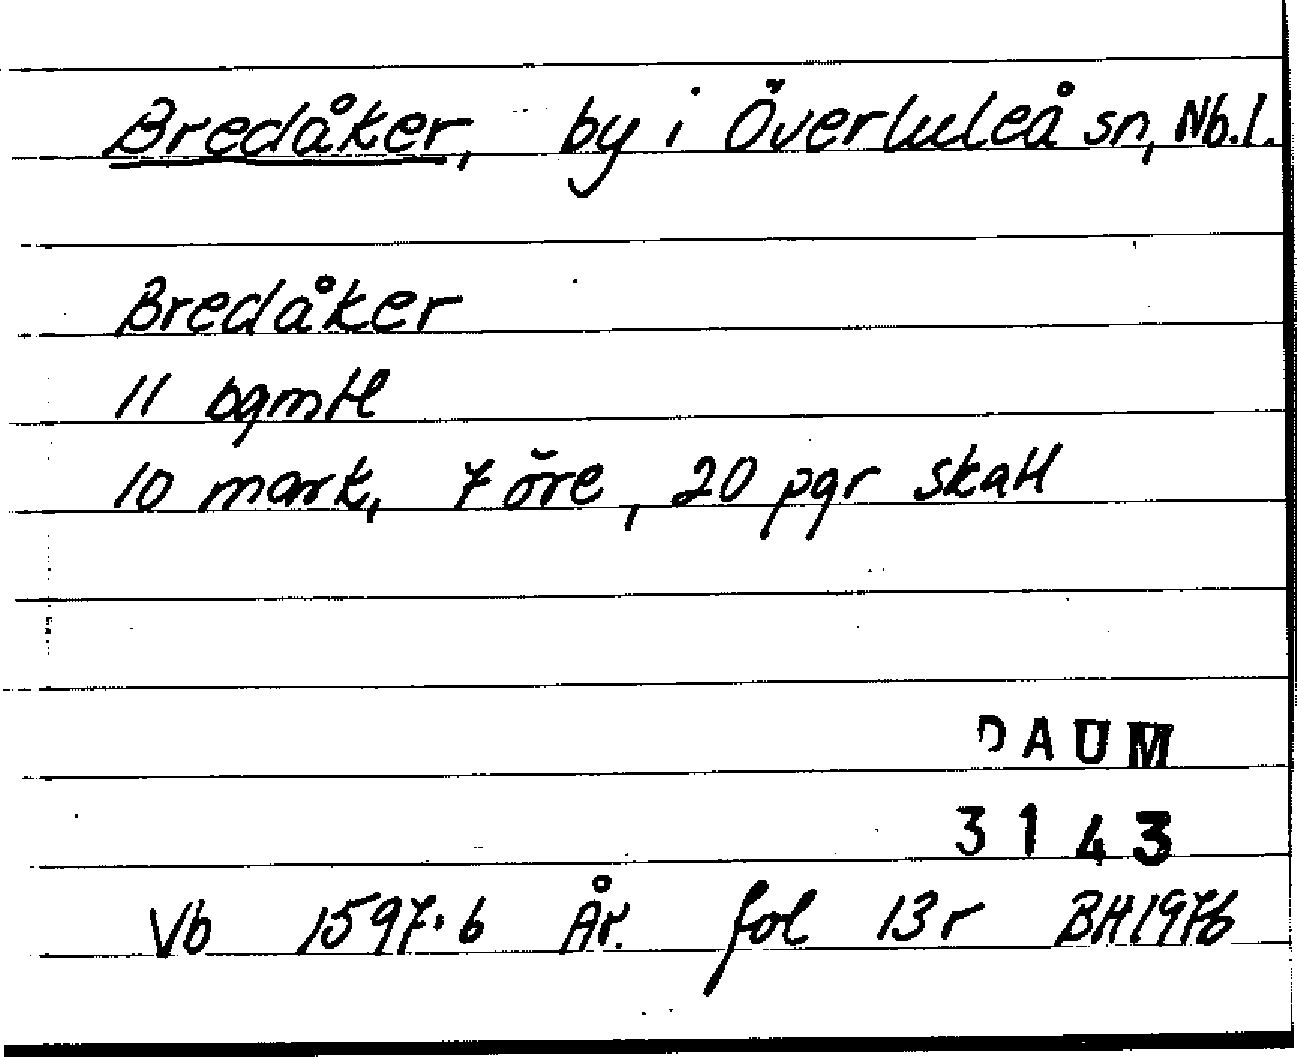 Bredåker, by i Överluleå sn, Nb.l.
Bredåker
11 bqmtl
10 mark, 7 öre, 20 pgr skatt
DAUM
3143
Vb 1597:6 År. fol 13r BH1976